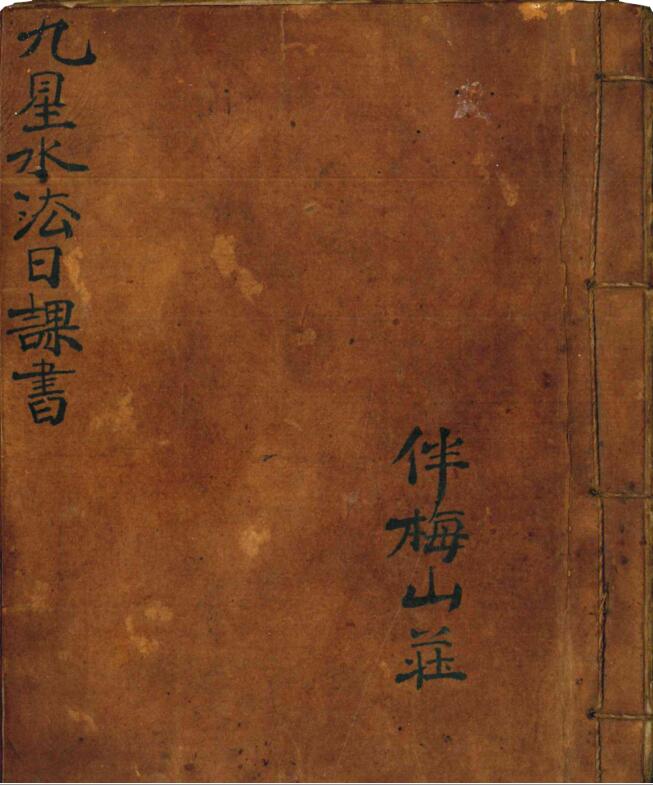 九星水法日課書
伴梅山莊